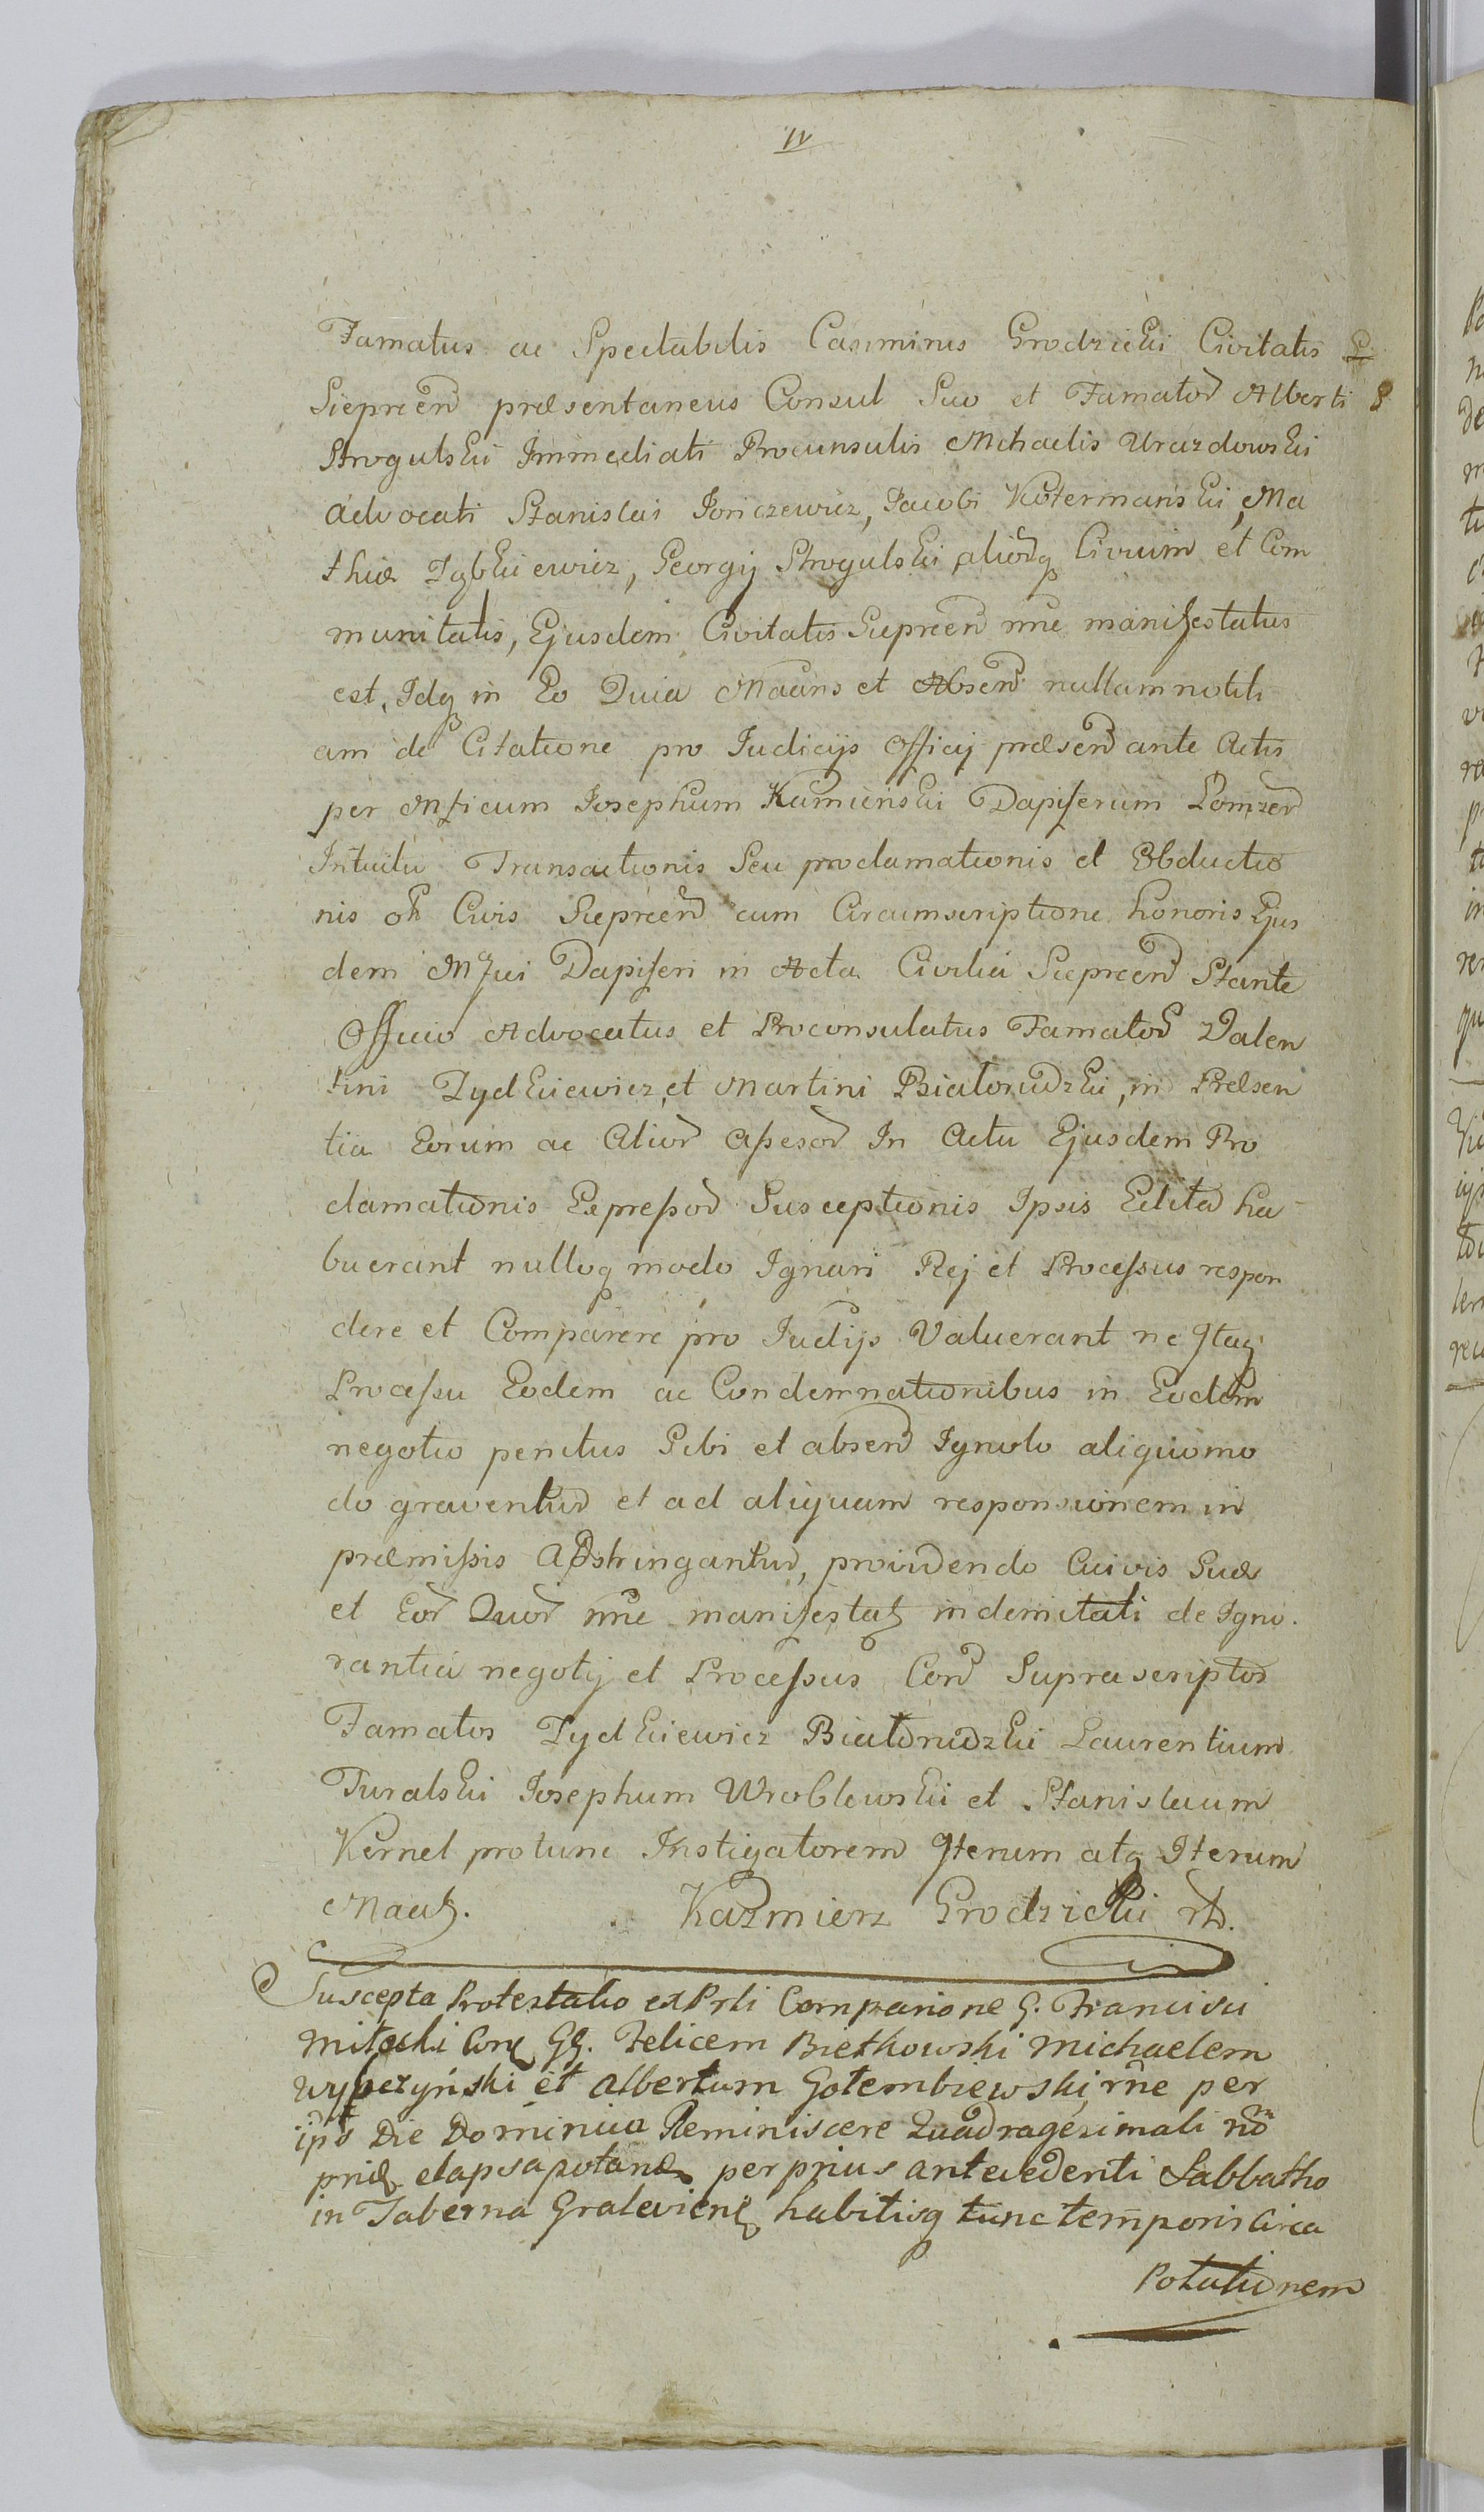 IV
Famatus ac Spectabilis Casimirus Grodzicki Civitatis
Sieprcen presentaneus Consul Suo et Famator Alberti
Strogulski Immediati Proconsulis Michaelis Urazdowski
advocati Stanislai Joniczewicz, Jacobi Kotermanski, Ma
thiæ Zybkiewicz, Georgij Strogulski aliorq Civium et Com
munitatis, Ejusdem Civitatis Sieprcen nne manifestatus
est, Idq in Eo Quia Maans et Absen nullam notiti
am de Citatione pro Judicijs Officij presen ante Actis
per Mficum Josephum Kamienski Dapiferum Lomzen
Intuitu Transactionis Seu proclamationis et Obductio
nis Civis Sieprcen cum Circumscriptione honoris Ejus
dem Mfici Dapiferi in Acta Civilia Sieprcen Stante
Officio Advocatus et Proconsulatus Famator Valen
tini Zydkiewicz, et Martini Bialorudzki, in Presen
tia Eorum ac Alior assesor In Actu Ejusdem Pro
clamationis Expressor Susceptionis Ipsis Edita ha
buerant nulloq modo Ignari Rej et Processus respon
dere et Comparere pro Judijs Valuerant ne Itaq
Processu Eodem ac Condemnationibus in Eodem
negotio penitus Sibi et absen Ignoto aliquomo
do graventur et ad aliquam responsionem in
præmissis Adstringantur, providendo Cuivis Suæ
et Eor Quor nne manifestat indemitati de Igno.
rantia negotij et Processus Con Suprascriptos
Famatos Zydkiewicz Bialorudzki Laurentium
Turalski Josephum Wroblewski et Stanislaum
Kernel protunc Instigatorem Iterum atq Iterum
Maat. Kazmierz Grodzicki
Suscepta Protestatio ex Prli Comparione G. Francisci
Mitoski Con GG. Felicem Bietkowski Michaelem
et Albertum Gotembiewski, rne per
ipos Die Dominica Reminiscere Quadragesimali
elapsa per prius antecedenti Sabbatho
in Taberna habitisq tunc temporis Circa
Potationem